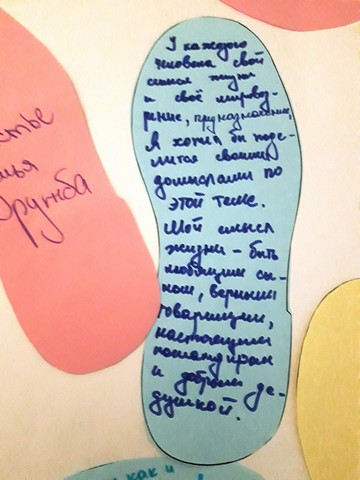 У каждого
человека свой
смысл жизни
и своё мировоз-
рение, предназначение,
Я хотел бы поде-
литься своими
домыслами по
этой теме.
Мой смысл
жизни - быть
любящим сы-
ном, верным
товарищем,
настоящим
командиром
и добрым де-
душкой.
дружба
как и